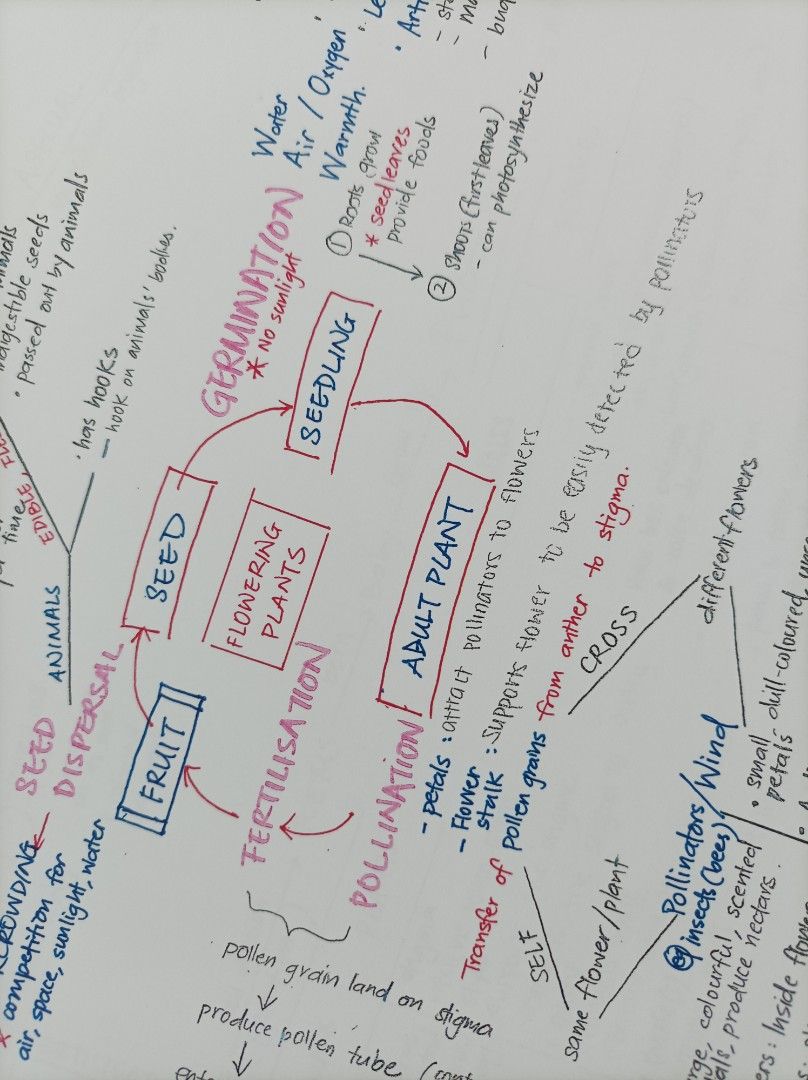 indigestible seeds
• passed out by animals
• has hooks
— hook on animals' bodies.
ANIMALS
EDIBLE,
SEED
DISPERSAL
* competition for
air, space, sunlight, water
FLOWERING
PLANTS
FRUIT
SEED
GERMINATION
* No sunlight
Water
Air / Oxygen
Warmth.
① Roots grow
* seed leaves
provide foods
② Shoots (first leaves)
- can photosynthesize
SEEDLING
ADULT PLANT
- petals : attract pollinators to flowers
- Flower
stalk : supports flower to be easily detected by pollinators
POLLINATION
Transfer of pollen grains from anther to stigma.
SELF
same flower/plant
CROSS
different flowers
Pollinators/Wind
eg insects (bees)
colourful, scented
produce nectars.
• small
petals - dull-coloured,
FERTILISATION
pollen grain land on stigma
produce pollen tube